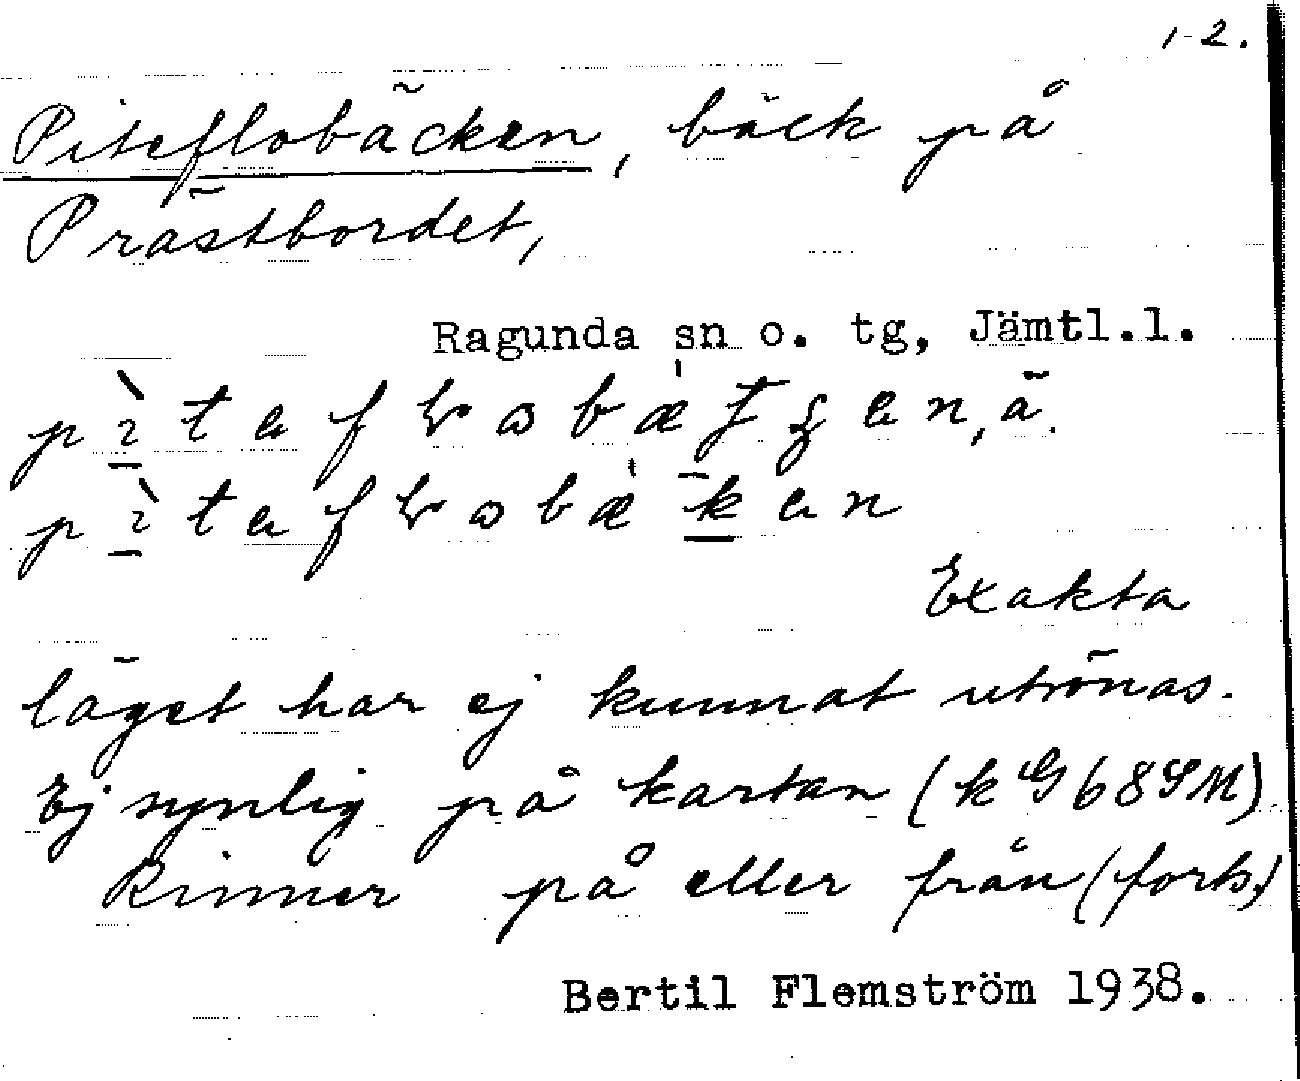 1-2.
Piteflobäcken, bäck på
Prästbordet,
Ragunda sn o. tg, Jämtl.l.
Exakta
läget har ej kunnat utrönas.
Ej synlig på kartan (k G 68 SM)
Rinner på eller från (forts.)
Bertil Flemström 1938.